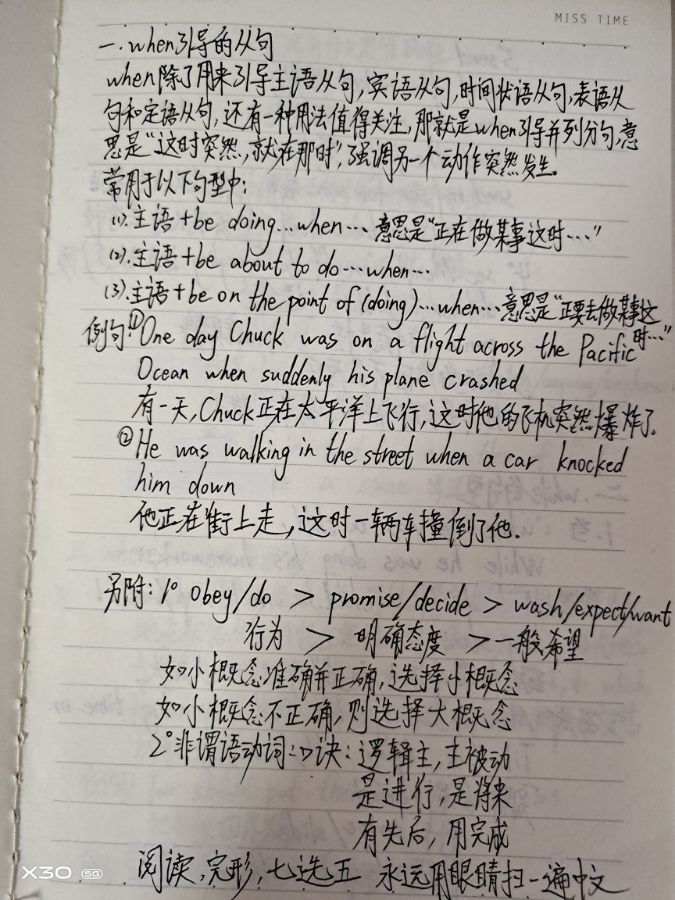 MISS TIME
一.when引导的从句
when除了用来引导主语从句,宾语从句,时间状语从句,表语从
句和定语从句,还有一种用法值得关注,那就是when引导并列分句,意
思是“这时突然,就在那时”,强调另一个动作突然发生。
常用于以下句型中:
(1).主语+be doing…when… 意思是“正在做某事这时…”
(2).主语+be about to do…when…
(3).主语+be on the point of (doing)…when…意思是“正要去做某事这
时…”
例句:①One day Chuck was on a flight across the Pacific
Ocean when suddenly his plane crashed
有一天,Chuck正在太平洋上飞行,这时他的飞机突然爆炸了。
②He was walking in the street when a car knocked
him down
他正在街上走,这时一辆车撞倒了他.
另附:1° obey/do > promise/decide > wash/expect/want
行为 > 明确态度 >一般希望
如小概念准确并正确,选择小概念
如小概念不正确,则选择大概念
2°非谓语动词口诀:逻辑主,主被动
是进行,是将来
有先后,用完成
阅读,完形,七选五 永远用眼睛扫一遍中文
X30 5G